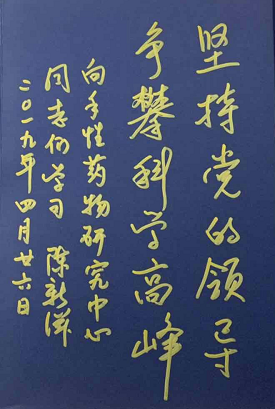 坚持党的领导
争攀科学高峰
向手性药物研究中心
同志们学习 陈新滋
二〇一九年四月廿六日